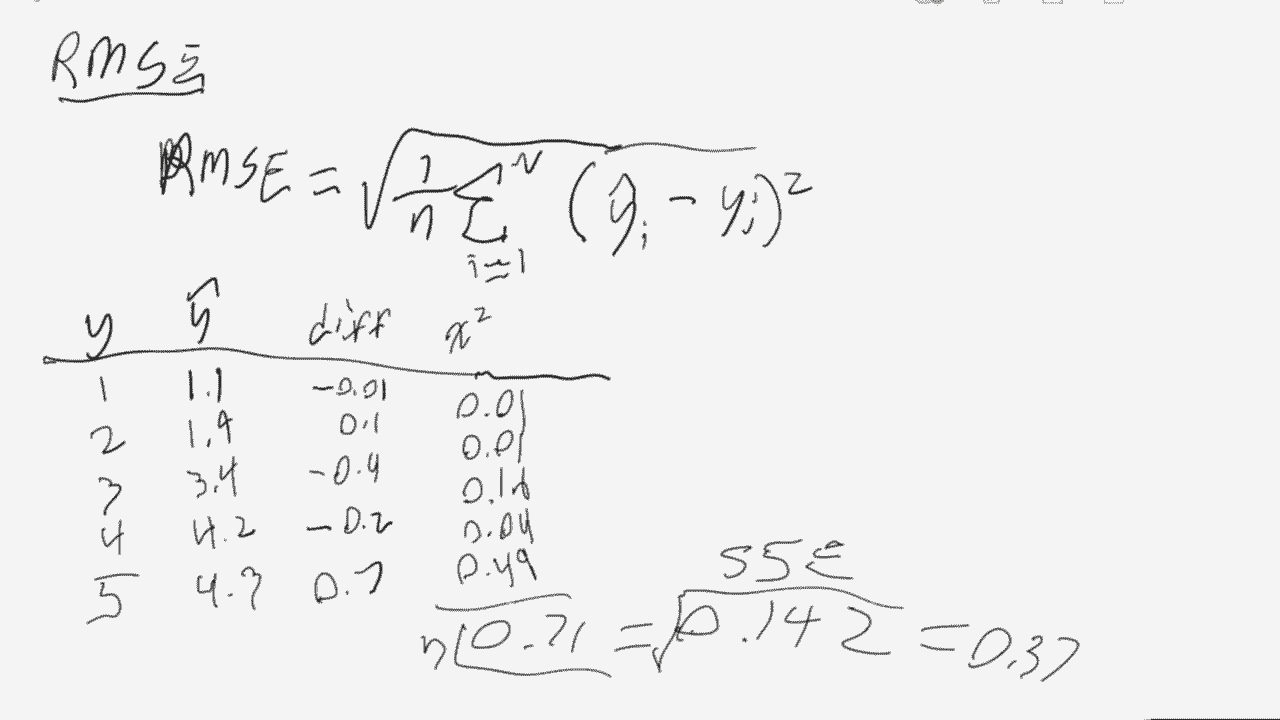 RMSE
RMSE = √ 1/n Σ i=1 N (ŷi - yi)²
y ŷ diff x²
1 1.1 -0.01 0.01
2 1.9 0.1 0.01
3 3.4 -0.4 0.16
4 4.2 -0.2 0.04
5 4.3 0.7 0.49
SSE
n 0.71 = √0.142 = 0.37